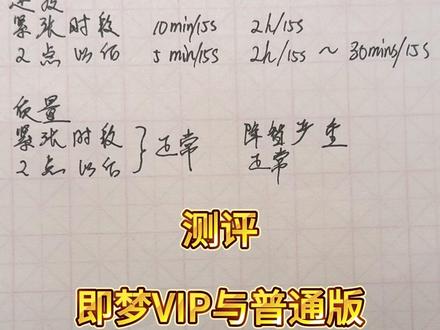 速度
紧张时段 10min/15s 2h/15s
2点以后 5min/15s 2h/15s ~ 30mins/15s
质量
紧张时段 } 正常 降智严重
2点以后 正常
测评
即梦VIP与普通版